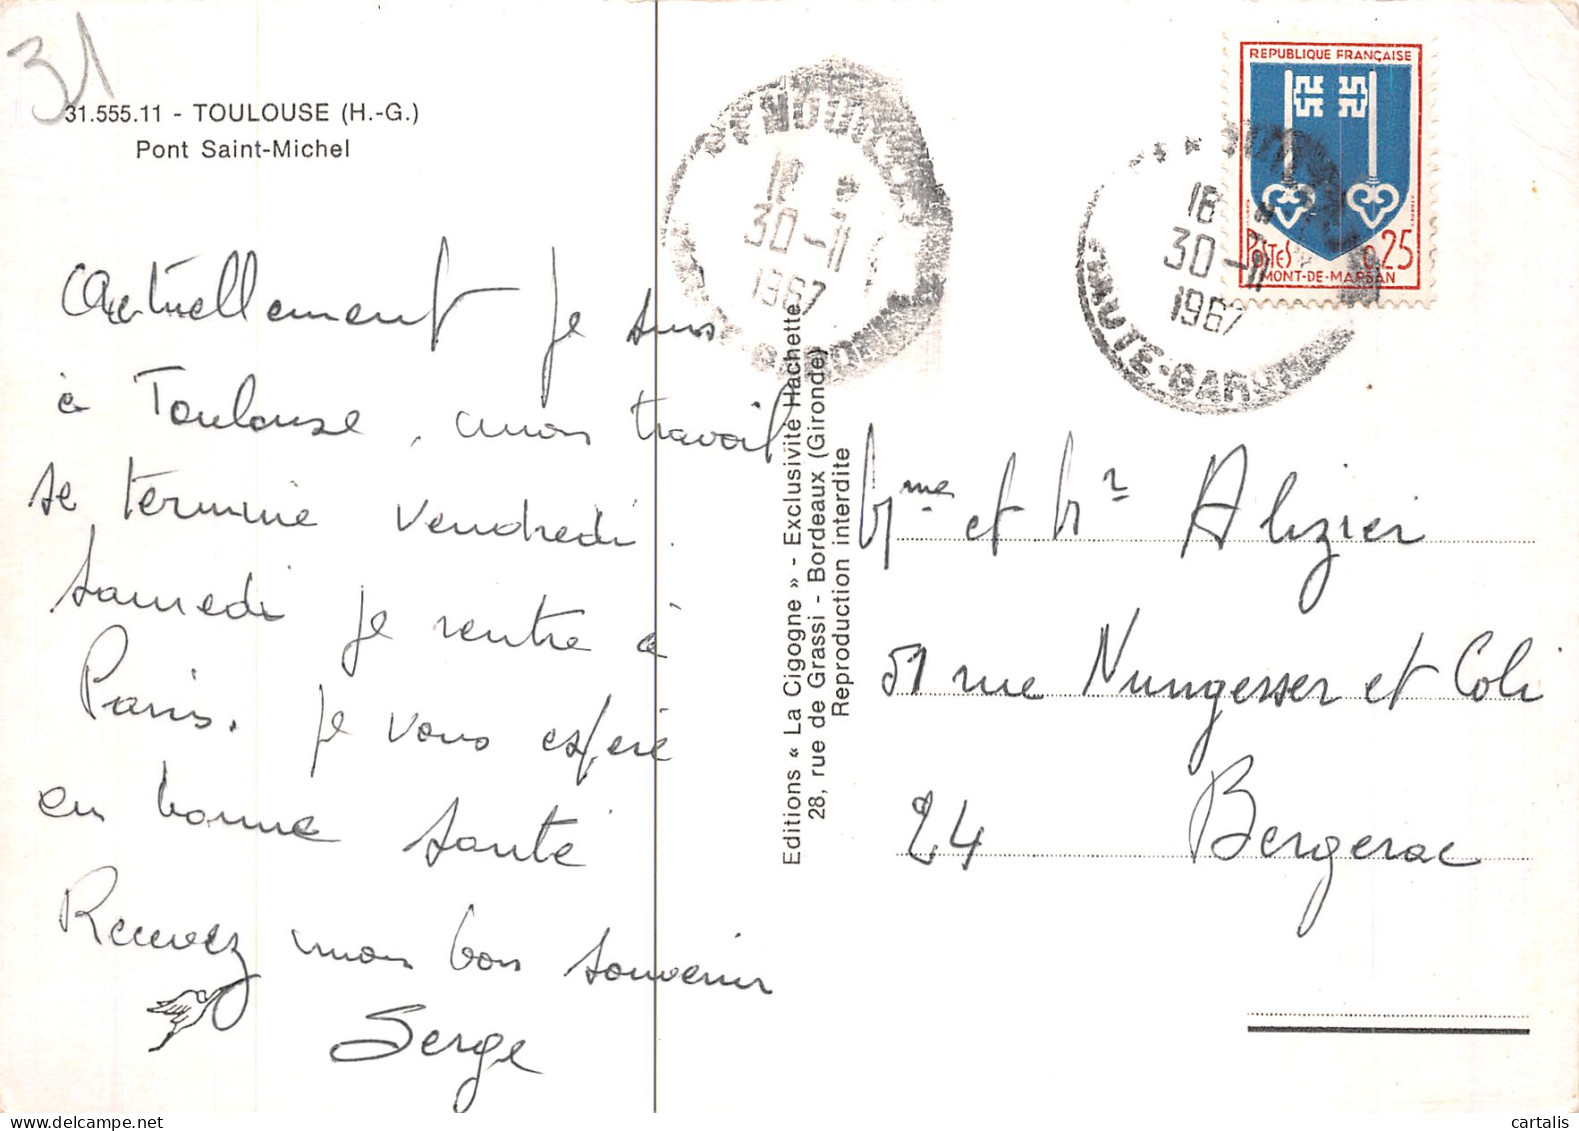 31
31.555.11 - TOULOUSE (H.-G.)
Pont Saint-Michel
Actuellement je suis
à Toulouse, mon travail
se termine vendredi.
Samedi je rentre à
Paris. Je vous espère
en bonne santé
Recevez mon bon souvenir
Serge
Editions « La Cigogne » - Exclusivité Hachette
28, rue de Grassi - Bordeaux (Gironde)
Reproduction interdite
18
30-11
1967
18
30-11
1967
HAUTE-GARONNE
REPUBLIQUE FRANÇAISE
POSTES 0,25
MONT-DE-MARSAN
Mme et Mr Alizier
51 rue Nungesser et Coli
24 Bergerac
cartalis